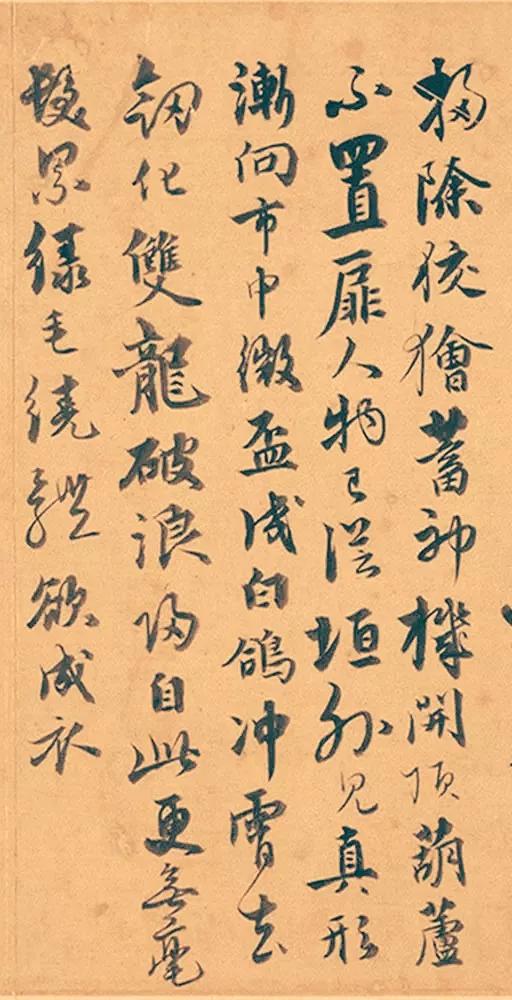 掃除狡獪蓄神機開頂葫蘆
不置扉人物已從垣外見真形
漸向市中微盃成白鴿冲霄去
劍化雙龍破浪歸自此更無毫
髮累綠毛繞體欲成衣